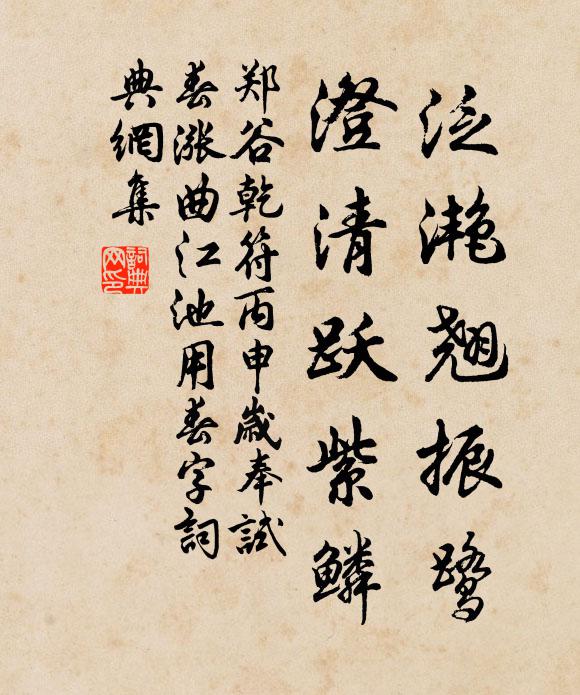 泛滟翘振鹭
澄清跃紫鳞
郑谷乾符丙申岁奉試
春漲曲江池用春字詞
典網集
詞典网印